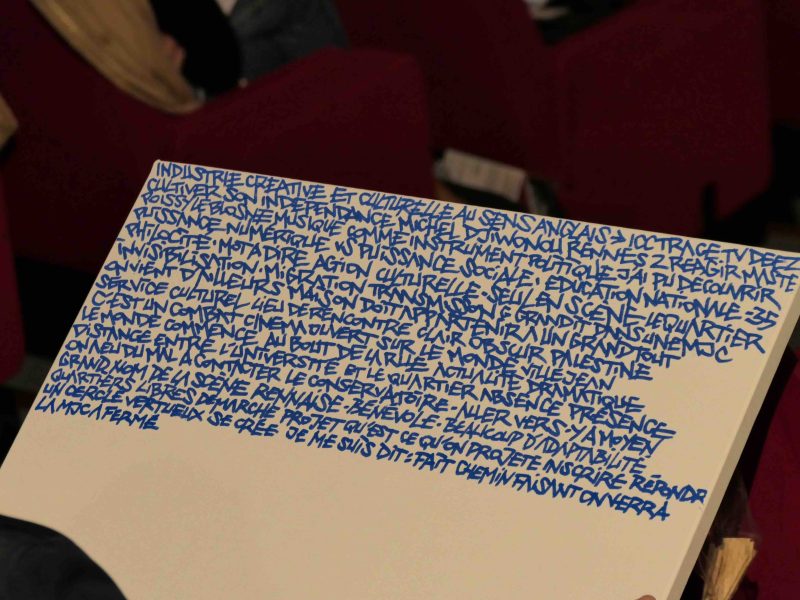 INDUSTRIE CREATIVE ET CULTURELLE AU SENS ANGLAIS > ICC TRACE TV DEEZ
CULTIVER SON INDEPENDANCE MICHEL D. SIMONOU RENNES 2 REAGIR MASTE
POISSY LE BLOSNE MUSIQUE COMME INSTRUMENT POLITIQUE J'AI PU DECOUVRIR
PUISSANCE NUMERIQUE VS PUISSANCE SOCIALE : EDUCATION NATIONALE : 35
PHILOCITÉ : MOT A DIRE ACTION CULTURELLE SEUL EN SCENE LE QUARTIER
INVISIBILISATION MIGRATION TRANSMISSION GRANDIT DANS UNE MJC
ON VIENT D'AILLEURS MAISON DOIT APPARTENIR A UN GRAND TOUT
SERVICE CULTUREL LIEU DE RENCONTRE CLAIR OBSCUR PALESTINE
C'EST UN COMBAT CINEMA OUVERT SUR LE MONDE VILLEJEAN
LE MONDE COMMENCE AU BOUT DE LA RUE ACTUALITÉ DRAMATIQUE
DISTANCE ENTRE L'UNIVERSITÉ ET LE QUARTIER ABSENCE PRÉSENCE
ON A EU DU MAL A CONTACTER LE CONSERVATOIRE - ALLER VERS - Y A MOYEN
GRAND NOM DE LA SCENE RENNAISE - BÉNÉVOLE - BEAUCOUP D'ADAPTABILITÉ
QUARTIERS LIBRES DEMARCHE PROJET QU'EST CE QU'ON PROJETE INSCRIRE RÉPONDR
UN CERCLE VERTUEUX SE CRÉE JE ME SUIS DIT : FAIT CHEMIN FAISANT ON VERRA
LA MJC A FERMÉ